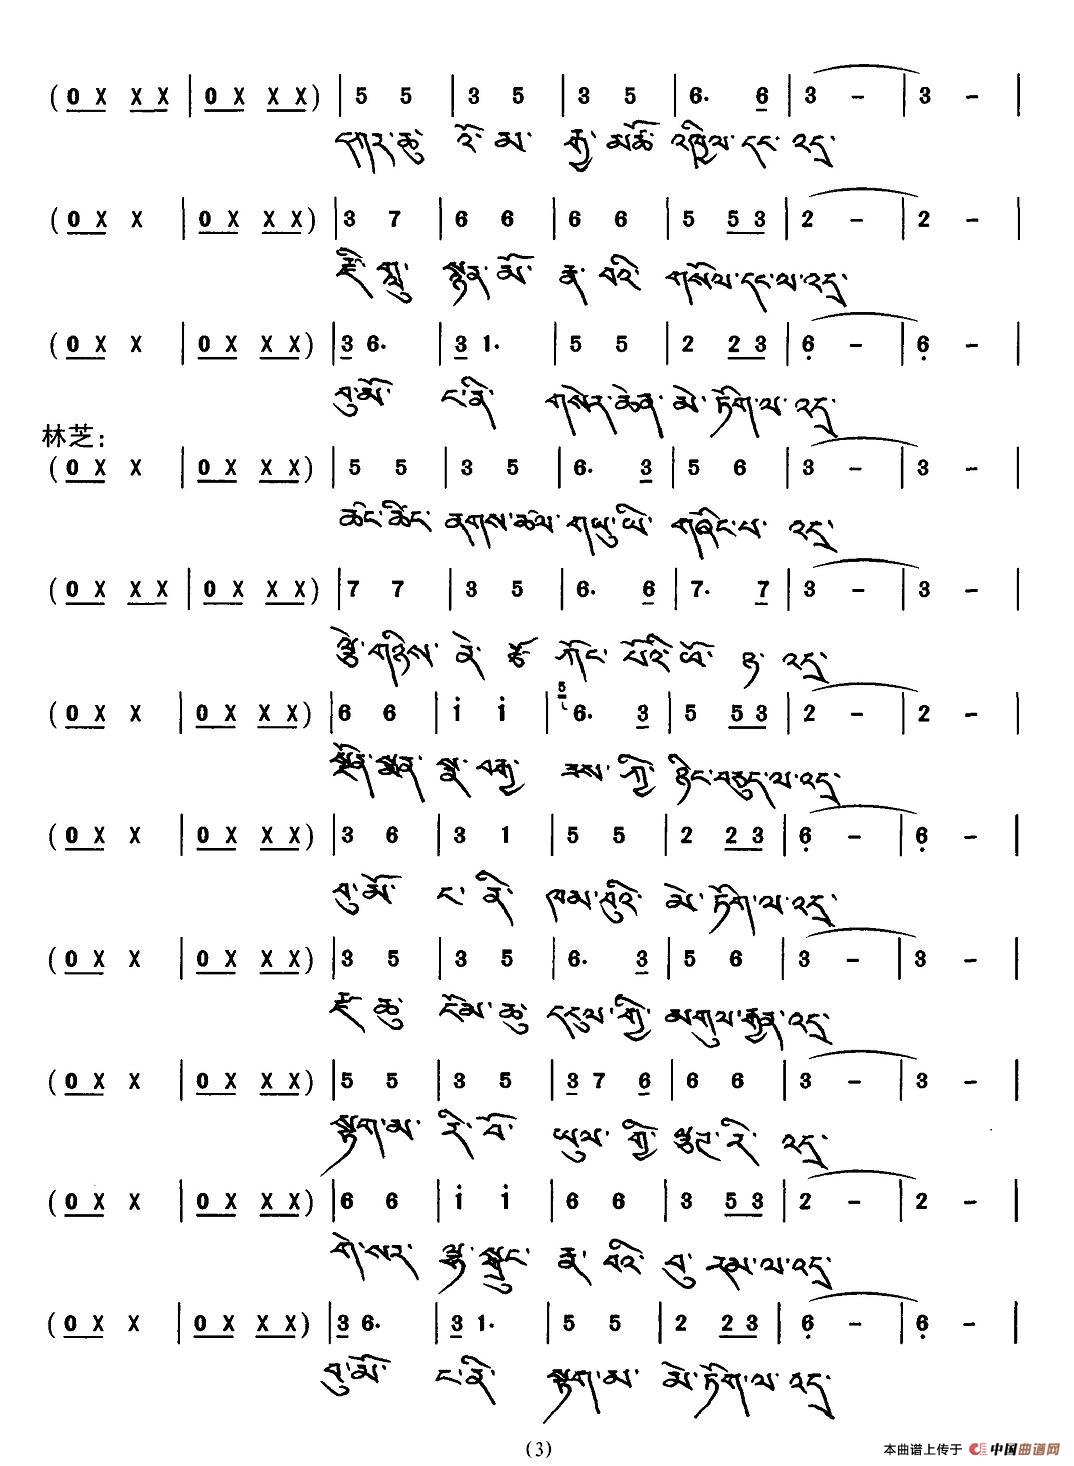 (0 X X X | 0 X X X) | 5 5 | 3 5 | 3 5 | 6· 6 | 3 – | 3 – |
དཀར་ཆུ་ འོ་མ་ རྒྱ་མཚོ་ འཁྱིལ་དང་ འདྲ་
(0 X X | 0 X X X) | 3 7 | 6 6 | 6 6 | 5 5 3 | 2 – | 2 – |
རྫོ་གླུ་ སྙན་མོ་ རྣ་བའི་ གསོལ་དང་ལ་འདྲ་
(0 X X | 0 X X X) | 3 6· | 3 1· | 5 5 | 2 2 3 | 6̣ – | 6̣ – |
བུ་མོ་ ང་ནི་ གསེར་ཆེན་ མེ་ཏོག་ལ་འདྲ་
林芝:
(0 X X | 0 X X X) | 5 5 | 3 5 | 6· 3 | 5 6 | 3 – | 3 – |
ཚང་ཚིང་ ནགས་ཚལ་ གཡུ་ཡི་ གཞོང་པ་ འདྲ་
(0 X X X | 0 X X X) | 7 7 | 3 5 | 6· 6 | 7· 7 | 3 – | 3 – |
ཀོང་པོའི་ཡོ་ འདྲ་
(0 X X | 0 X X X) | 6 6 | i i | 5 6· 3 | 5 5 3 | 2 – | 2 – |
སྨན་སྣ་བརྒྱ་ ཟས་ཀྱི་ ཉིང་བཅུད་ལ་འདྲ་
(0 X X | 0 X X X) | 3 6 | 3 1 | 5 5 | 2 2 3 | 6̣ – | 6̣ – |
བུ་མོ་ ང་ནི་ ཁམ་བུའི་ མེ་ཏོག་ལ་འདྲ་
(0 X X | 0 X X X) | 3 5 | 3 5 | 6· 3 | 5 6 | 3 – | 3 – |
རྫ་ཆུ་ ངོམ་ཆུ་ དངུལ་གྱི་ མགུལ་རྒྱན་འདྲ་
(0 X X | 0 X X X) | 5 5 | 3 5 | 3 7 6 | 6 6 | 3 – | 3 – |
སྟག་མ་ རི་བོ་ ཡུལ་གྱི་ ལྷ་རི་ འདྲ་
(0 X X | 0 X X X) | 6 6 | i i | 6 6 | 3 5 3 | 2 – | 2 – |
གེ་སར་ ལྷ་སྲུང་ བུ་རམ་ལ་འདྲ་
(0 X X | 0 X X X) | 3 6· | 3 1· | 5 5 | 2 2 3 | 6̣ – | 6̣ – |
བུ་མོ་ ང་ནི་ སྟག་མ་ མེ་ཏོག་ལ་འདྲ་
(3)
本曲谱上传于 中国曲谱网